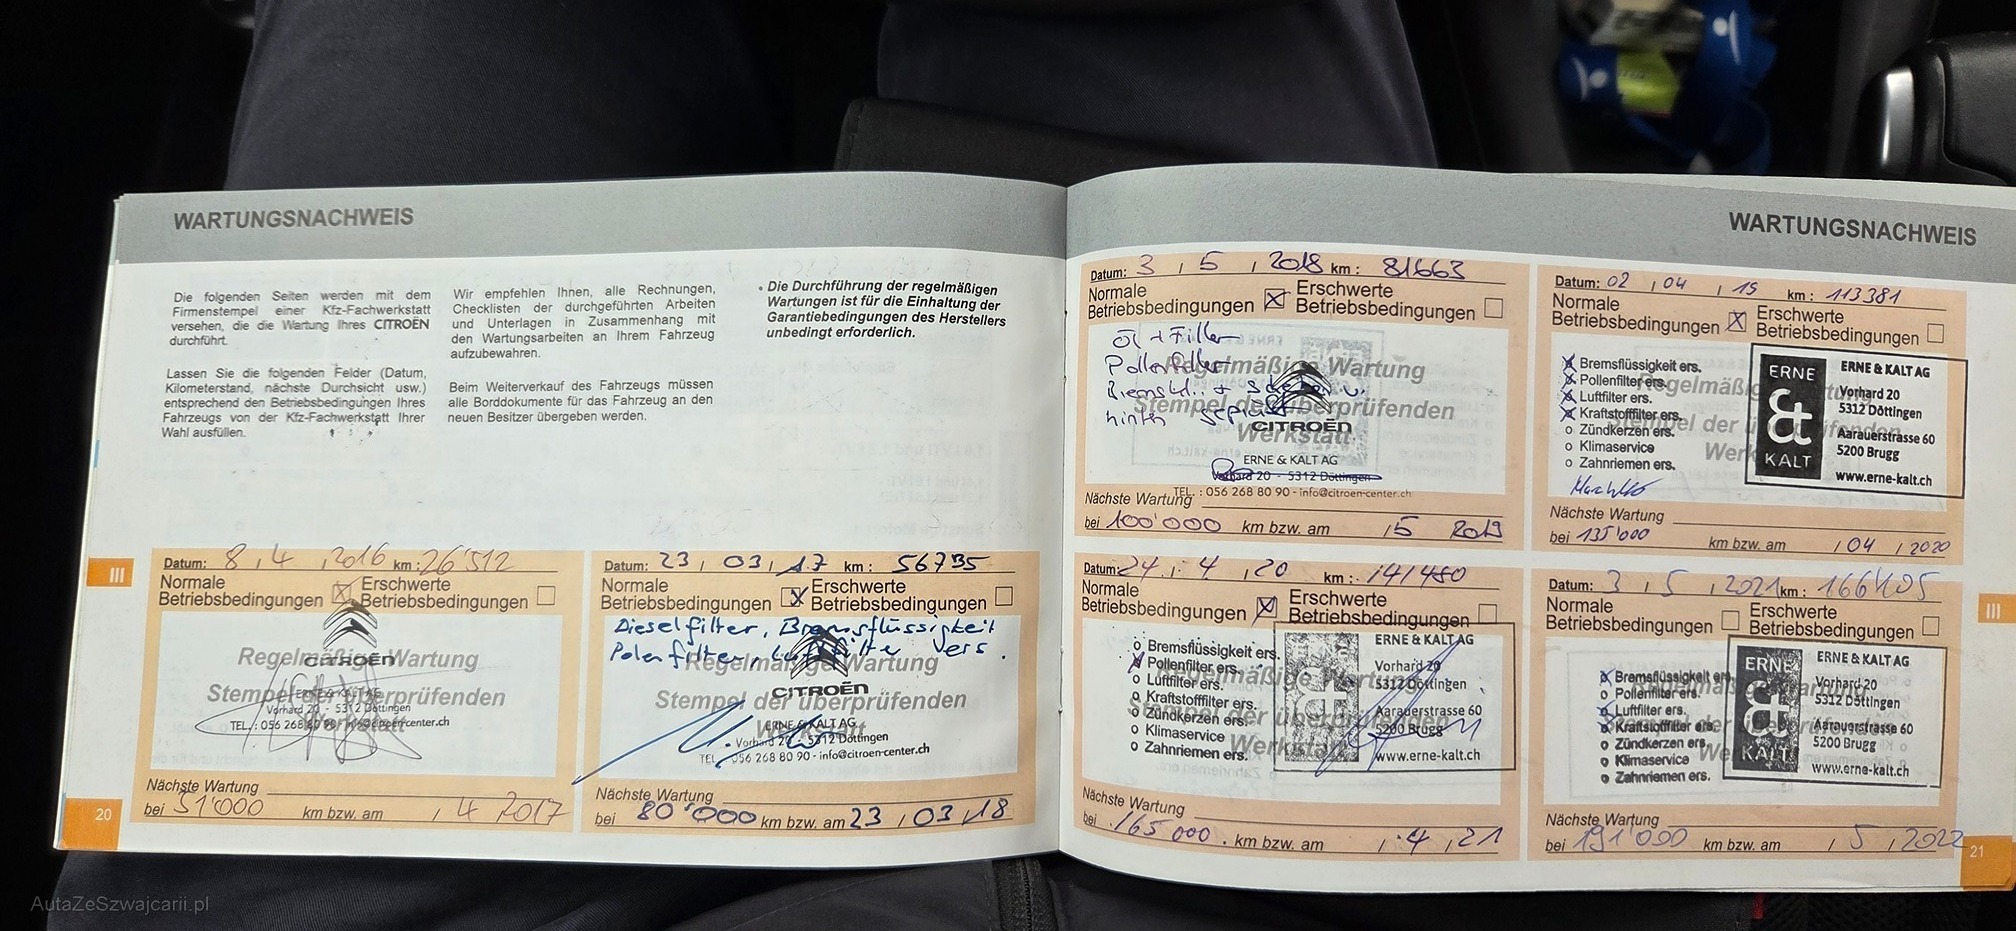 WARTUNGSNACHWEIS
Die folgenden Seiten werden mit dem
Firmenstempel einer Kfz-Fachwerkstatt
versehen, die die Wartung Ihres CITROËN
durchführt.
Lassen Sie die folgenden Felder (Datum,
Kilometerstand, nächste Durchsicht usw.)
entsprechend den Betriebsbedingungen Ihres
Fahrzeugs von der Kfz-Fachwerkstatt Ihrer
Wahl ausfüllen.
Wir empfehlen Ihnen, alle Rechnungen,
Checklisten der durchgeführten Arbeiten
und Unterlagen in Zusammenhang mit
den Wartungsarbeiten an Ihrem Fahrzeug
aufzubewahren.
Beim Weiterverkauf des Fahrzeugs müssen
alle Borddokumente für das Fahrzeug an den
neuen Besitzer übergeben werden.
• Die Durchführung der regelmäßigen
Wartungen ist für die Einhaltung der
Garantiebedingungen des Herstellers
unbedingt erforderlich.
III
Datum: 8 . 4 . 2016 km : 26'512
Normale Betriebsbedingungen Erschwerte Betriebsbedingungen
Regelmäßige Wartung
CITROËN
Stempel der überprüfenden
Werkstatt
ERNE & KALT AG
Vorhard 20 - 5312 Döttingen
TEL. : 056 268 80 90 - info@citroen-center.ch
Nächste Wartung
bei 51'000 km bzw. am , 4 , 2017
Datum: 23 , 03 , 17 km : 56735
Normale Betriebsbedingungen Erschwerte Betriebsbedingungen
Dieselfilter, Bremsflüssigkeit
Polenfilter, Luftfilter ers.
Regelmäßige Wartung
CITROËN
Stempel der überprüfenden
Werkstatt
ERNE & KALT AG
Vorhard 20 - 5312 Döttingen
TEL. 056 268 80 90 - info@citroen-center.ch
Nächste Wartung
bei 80'000 km bzw. am 23 , 03 , 18
20
WARTUNGSNACHWEIS
Datum: 3 , 5 , 2018 km : 81663
Normale Betriebsbedingungen Erschwerte Betriebsbedingungen
Öl + Filter
Pollenfilter
Regelmäßige Wartung
Stempel der überprüfenden
hinten
CITROËN
Werkstatt
ERNE & KALT AG
Vorhard 20 - 5312 Döttingen
TEL. : 056 268 80 90 - info@citroen-center.ch
Nächste Wartung
bei 100'000 km bzw. am , 5 2019
Datum: 02 , 04 , 19 km : 113381
Normale Betriebsbedingungen Erschwerte Betriebsbedingungen
Bremsflüssigkeit ers.
Pollenfilter ers.
Luftfilter ers.
Kraftstofffilter ers.
o Zündkerzen ers.
o Klimaservice
o Zahnriemen ers.
Regelmäßige Wartung
Stempel der überprüfenden
Werkstatt
ERNE & KALT
ERNE & KALT AG
Vorhard 20
5312 Döttingen
Aarauerstrasse 60
5200 Brugg
www.erne-kalt.ch
Nächste Wartung
bei 135'000 km bzw. am , 04 , 2020
Datum: 24 . 4 , 20 km : 141480
Normale Betriebsbedingungen Erschwerte Betriebsbedingungen
o Bremsflüssigkeit ers.
Pollenfilter ers.
o Luftfilter ers.
o Kraftstofffilter ers.
o Zündkerzen ers.
o Klimaservice
o Zahnriemen ers.
Regelmäßige Wartung
Stempel der überprüfenden
Werkstatt
ERNE & KALT AG
Vorhard 20
5312 Döttingen
Aarauerstrasse 60
5200 Brugg
www.erne-kalt.ch
Nächste Wartung
bei 165 000 km bzw. am , 4 , 21
Datum: 3 , 5 , 2021 km : 166405
Normale Betriebsbedingungen Erschwerte Betriebsbedingungen
Bremsflüssigkeit ers.
o Pollenfilter ers.
Luftfilter ers.
Kraftstofffilter ers.
o Zündkerzen ers.
o Klimaservice
o Zahnriemen ers.
Regelmäßige Wartung
Stempel der überprüfenden
Werkstatt
ERNE & KALT
ERNE & KALT AG
Vorhard 20
5312 Döttingen
Aarauerstrasse 60
5200 Brugg
www.erne-kalt.ch
Nächste Wartung
bei 191'000 km bzw. am , 5 , 2022
III
21
AutaZeSzwajcarii.pl